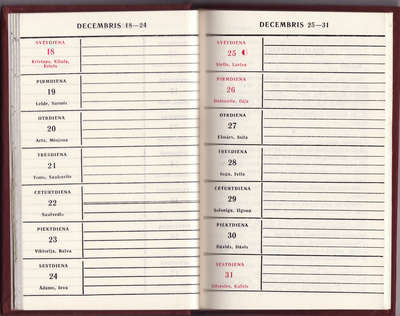 DECEMBRIS 18—24
SVĒTDIENA
18
Kristaps, Klinta,
PIRMDIENA
19
Lelde, Sarmis
OTRDIENA
20
Arta, Minjona
TREŠDIENA
21
Toms, Saulcerīte
CETURTDIENA
22
Saulvedis
PIEKTDIENA
23
Viktorija, Balva
SESTDIENA
24
Ādams, Ieva
DECEMBRIS 25—31
SVĒTDIENA
25
Stella, Larisa
PIRMDIENA
26
Dainuvīte, Gija
OTRDIENA
27
Elmārs, Inita
TREŠDIENA
28
Inga, Ivita
CETURTDIENA
29
Solveiga, Ilgona
PIEKTDIENA
30
Dāvids, Dāvis
SESTDIENA
31
Silvestrs, Kalvis